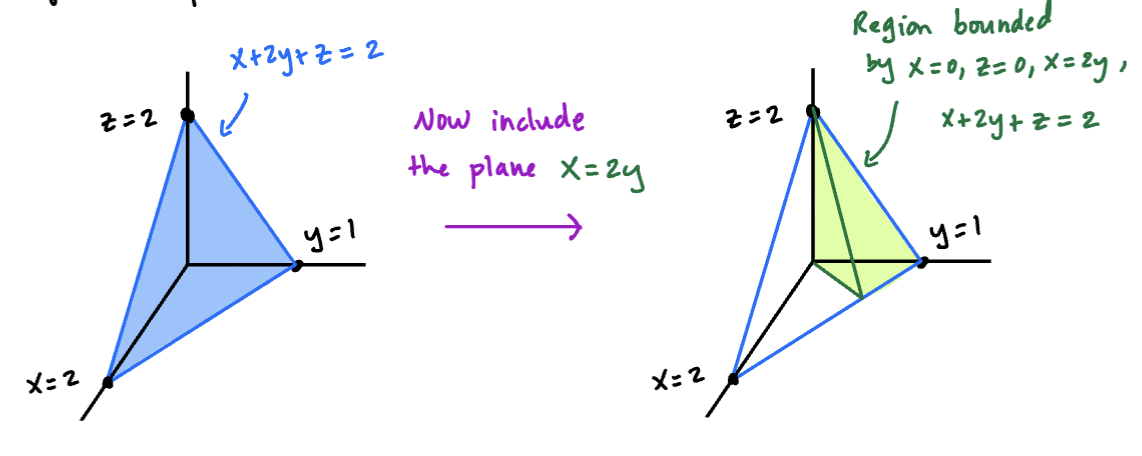 x+2y+z=2
z=2
y=1
x=2
Now include
the plane x=2y
Region bounded
by x=0, z=0, x=2y,
x+2y+z=2
z=2
y=1
x=2